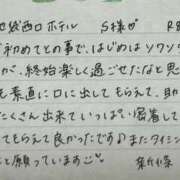 池袋西口ホテル S様♡ R8
初めてとの事で、はじめはソワソワ
が、終始楽しく過ごせたなと思
も素直に口に出してもらえて、助
たくさん出来ていっぱい密着して
てもらえて良かったです♪またタイミン
と願っています